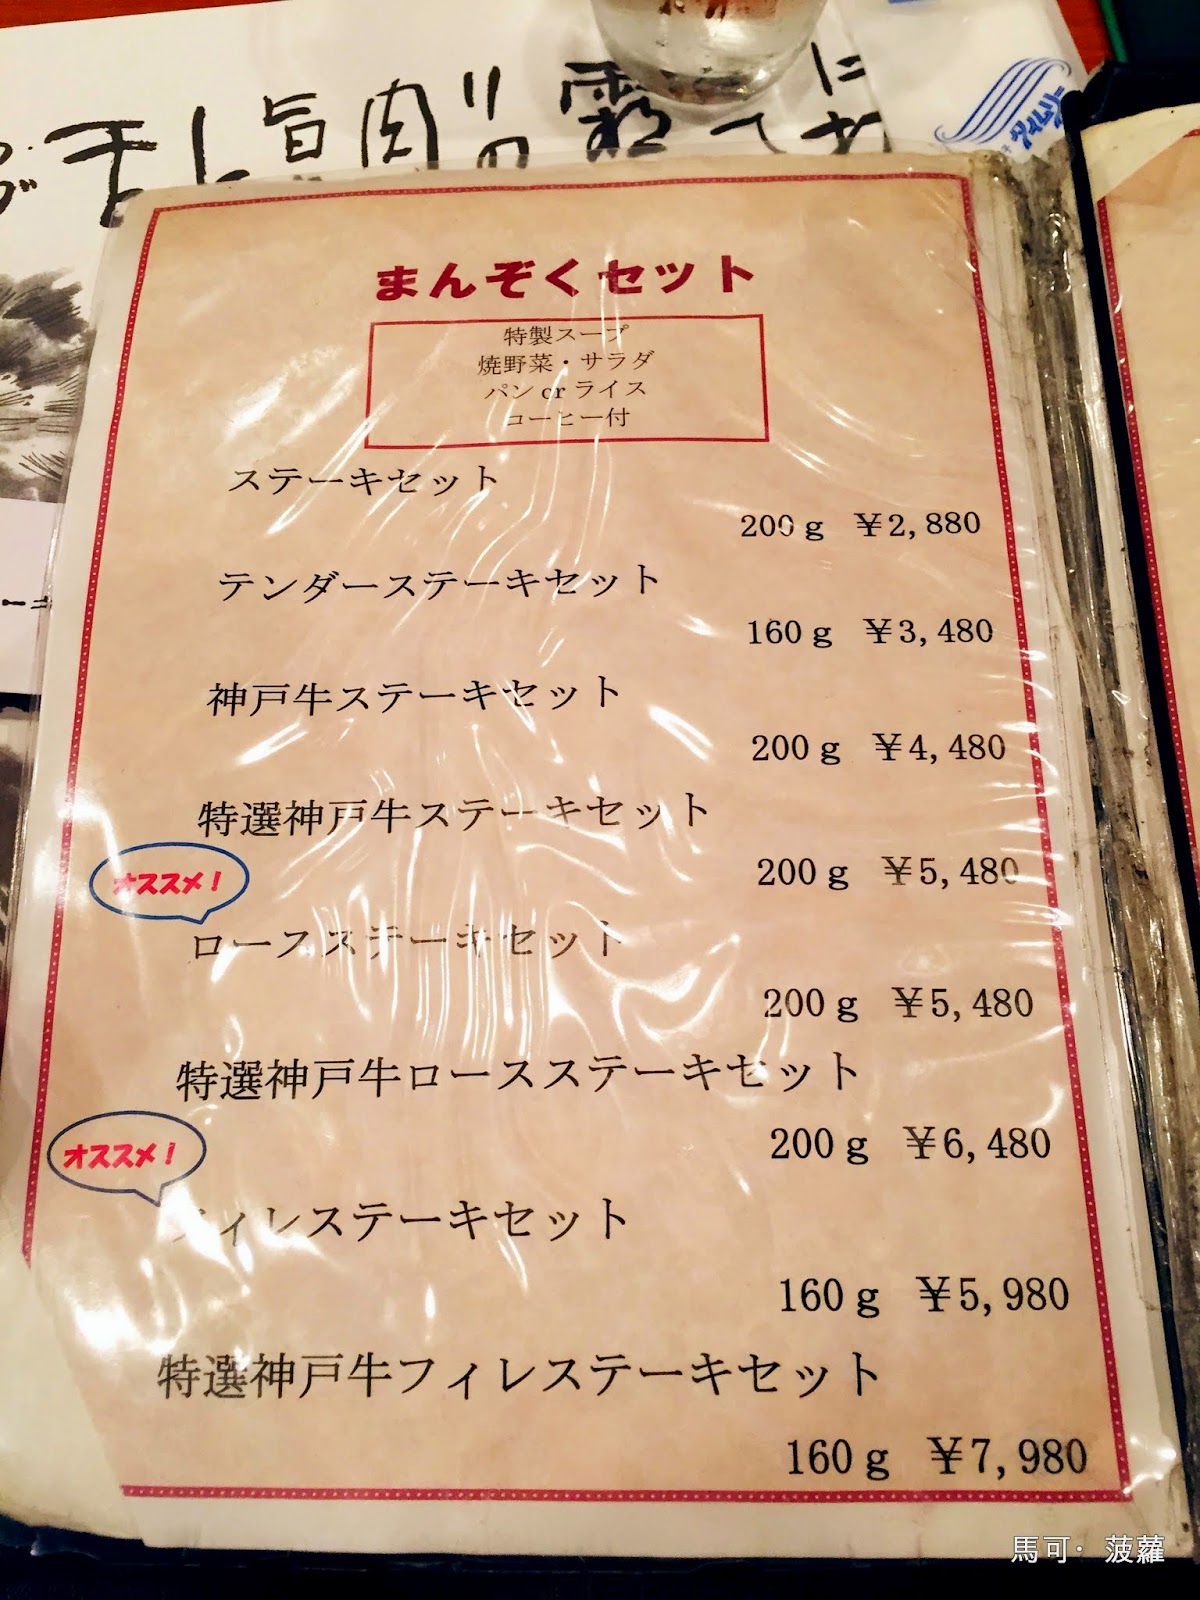 旨肉
の霜
まんぞくセット
特製スープ
焼野菜・サラダ
パン or ライス
コーヒー付
ステーキセット
200g ¥2,880
テンダーステーキセット
160g ¥3,480
神戸牛ステーキセット
200g ¥4,480
特選神戸牛ステーキセット
200g ¥5,480
オススメ!
ロースステーキセット
200g ¥5,480
特選神戸牛ロースステーキセット
200g ¥6,480
オススメ!
フィレステーキセット
160g ¥5,980
特選神戸牛フィレステーキセット
160g ¥7,980
馬可·菠蘿